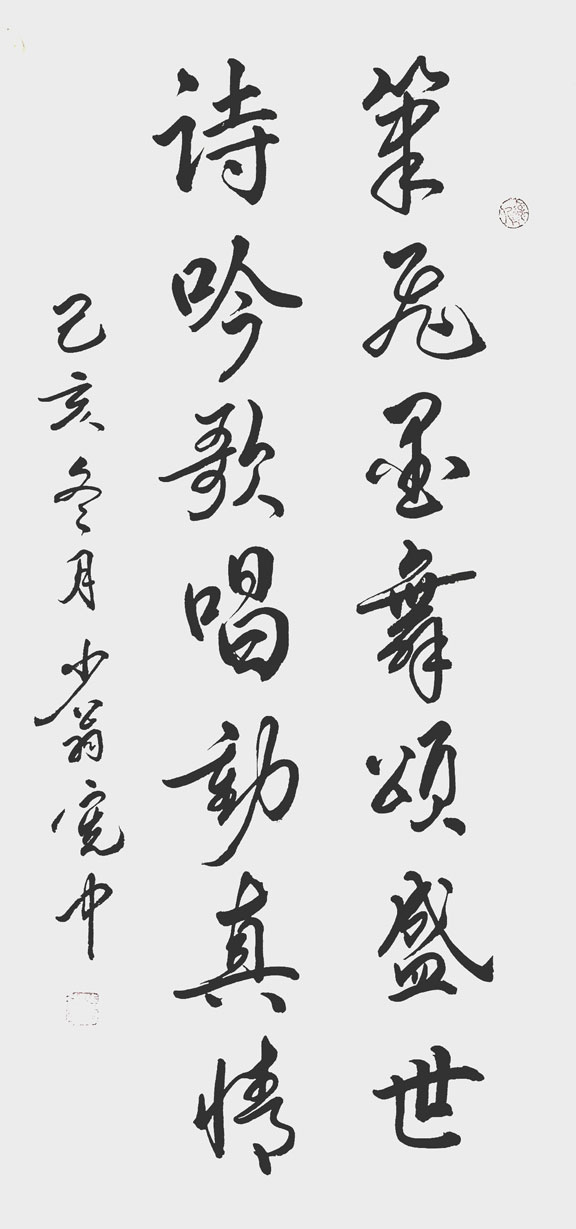 笔飞墨舞颂盛世
诗吟歌唱动真情
己亥冬月少翁宽中